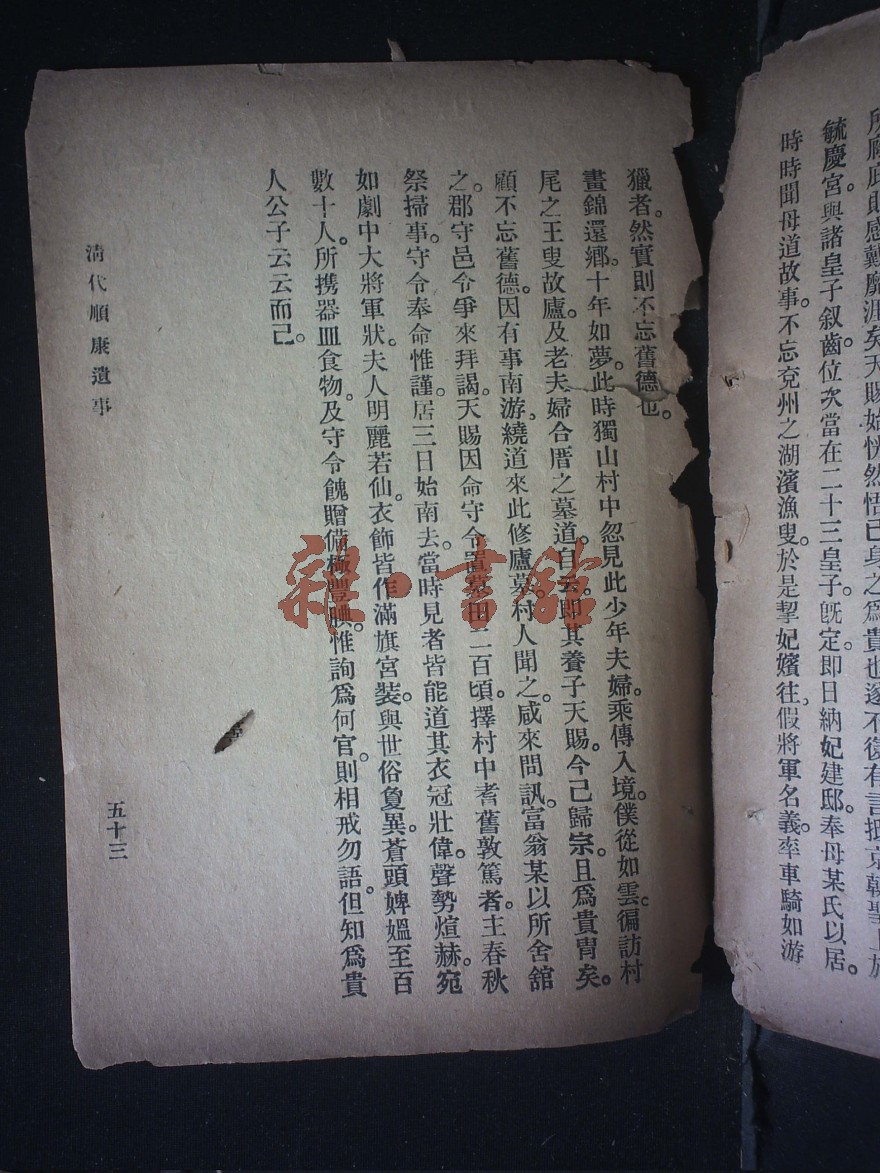 所　　底則感戴靡涯矣天賜始恍然悟已身之爲貴也遂不復有言抵京朝聖上於
毓慶宮。與諸皇子叙齒位次當在二十三皇子。旣定。即日納妃建邸。奉母某氏以居。
時時聞母道故事。不忘兗州之湖濱漁叟。於是挈妃嬪往。假將軍名義。率車騎如游
獵者。然實則不忘舊德也。
晝錦還鄉。十年如夢。此時獨山村中忽見此少年夫婦。乘傳入境。僕從如雲。徧訪村
尾之王叟故廬。及老夫婦合厝之墓道。自云。即其養子天賜。今已歸宗。且爲貴胄矣。
顧不忘舊德。因有事南游。繞道來此修廬墓。村人聞之。咸來問訊。富翁某以所舍舘
之。郡守邑令爭來拜謁。天賜因命守令置墓田二百頃。擇村中耆舊敦篤者。主春秋
祭掃事。守令奉命惟謹。居三日始南去。當時見者皆能道其衣冠壯偉。聲勢煊赫。宛
如劇中大將軍狀。夫人明麗若仙。衣飾皆作滿旗宮裝。與世俗敻異。蒼頭婢媼至百
數十人。所攜器皿食物。及守令餽贈備極豐腆。惟詢爲何官。則相戒勿語。但知爲貴
人公子云云而已。
清代順康遺事
五十三
雜·書舘